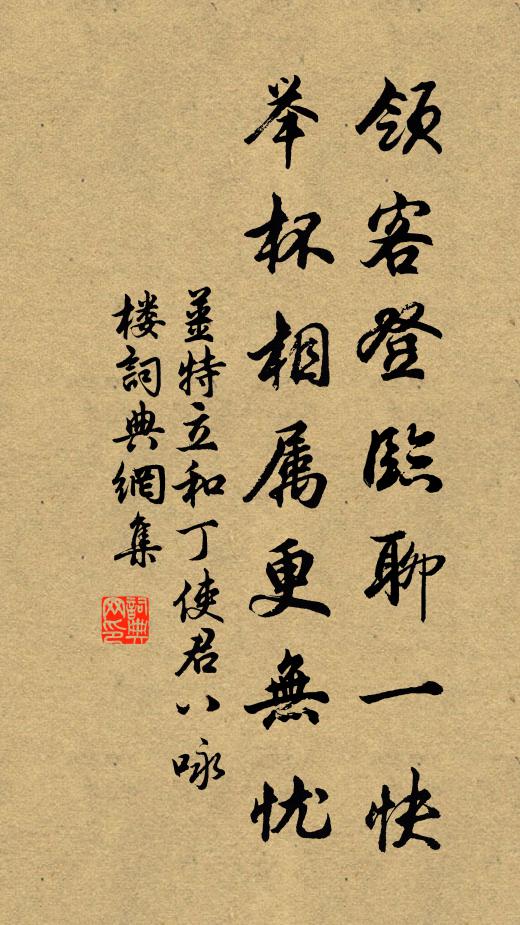 领客登臨聊一快
举杯相属更無忧
薑特立和丁使君八咏
楼詞典網集
詞典网印